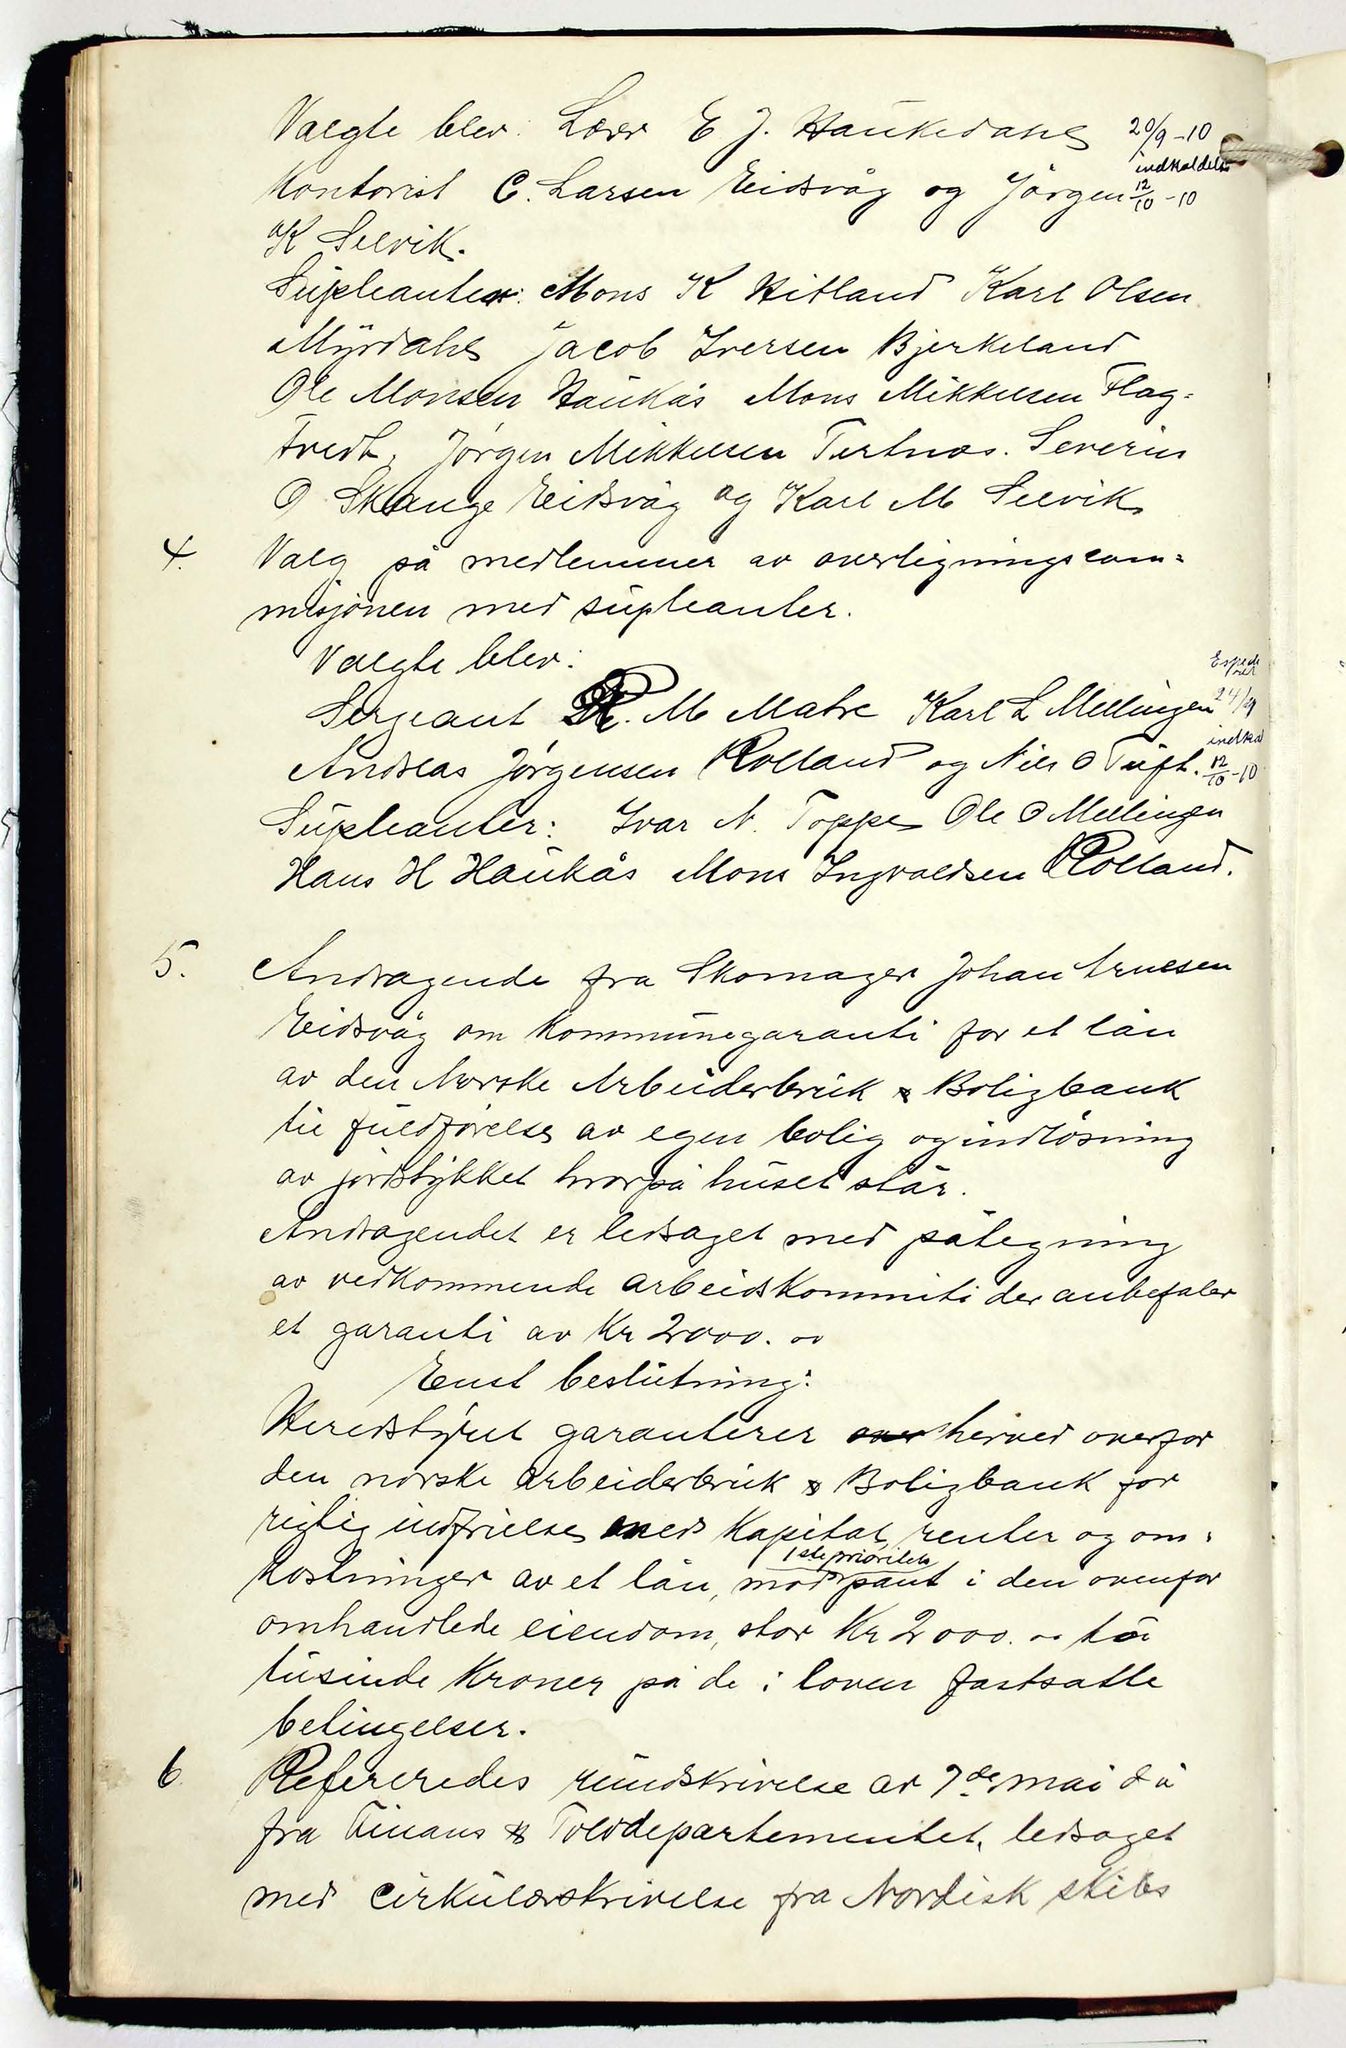 Valgte blev: Lærer E J. Haukedahl 20/9-10
indkaldelse
Kontorist C. Larsen Eidsvåg og Jørgen 12/10-10
K Selvik.
Supleanter: Mons K Hitland Karl Olsen
Myrdahl Jacob Iversen Bjerkeland
Ole Monsen Haukås Mons Mikkelsen Flag-
tvedt, Jørgen Mikkelsen Tertnæs. Severin
O Skauge Eidsvåg og Karl M Selvik.
4. Valg på medlemmer av overligningscom-
misjonen med supleanter.
Valgte blev:
Sergeant R. M Matre Karl L Mellingen 24/9
indkal
Andreas Jørgensen Rolland og Nils O Tuft. 12/10-10
Supleanter: Ivar N. Toppe Ole O Mellingen
Hans H Haukås Mons Ingvaldsen Rolland.
5. Andragende fra Skomager Johan Arnesen
Eidsvåg om Kommunegaranti for et lån
av den Norske Arbeiderbruk & Boligbank
til fuldførelse av egen bolig og indløsning
av jordstykket hvorpå huset står.
Andragendet er ledsaget med påtegning
av vedkommende arbeidskommite der anbefaler
et garanti av Kr 2000. oo
Enst beslutning:
Heredstyret garanterer herved overfor
den norske arbeiderbruk & Boligbank for
rigtig indfrielse med Kapital, renter og om-
1ste prioritets
kostninger av et lån, mod pant i den ovenfor
omhandlede eiendom, stor Kr 2000. oo to
tusinde Kroner på de i loven fastsatte
betingelser.
6 Refereredes rundskrivelse av 7de mai d å
fra Finans & Tolddepartementet, ledsaget
med cirkulærskrivelse fra Nordisk skibs